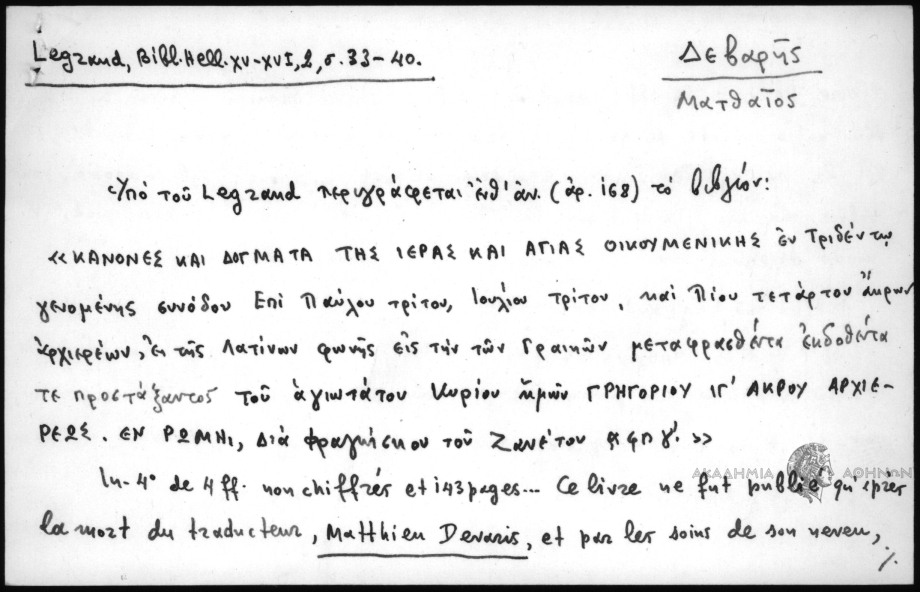 Legrand, Bibl. Hell. XV-XVI, 2, σ. 33-40.
Δεβαρῆς
Ματθαῖος
Ὑπό τοῦ Legrand περιγράφεται ἐνθ' ἀν. (ἀρ. 168) τό βιβλίον:
«ΚΑΝΟΝΕΣ ΚΑΙ ΔΟΓΜΑΤΑ ΤΗΣ ΙΕΡΑΣ ΚΑΙ ΑΓΙΑΣ ΟΙΚΟΥΜΕΝΙΚΗΣ ἐν Τριδέντῳ
γενομένης συνόδου Επί Παύλου τρίτου, Ιουλίου τρίτου, καί Πίου τετάρτου ἄκρων
ἀρχιερέων, ἐκ τῆς Λατίνων φωνῆς εἰς τήν τῶν Γραικῶν μεταφρασθέντα ἐκδοθέντα
τε προστάξαντος τοῦ ἁγιωτάτου Κυρίου ἡμῶν ΓΡΗΓΟΡΙΟΥ ΙΓ' ΑΚΡΟΥ ΑΡΧΙΕ-
ΡΕΩΣ. ΕΝ ΡΩΜΗΙ, Διά Φραγκίσκου τοῦ Ζανέτου ͵αφπγ'.»
ΑΚΑΔΗΜΙΑ ΑΘΗΝΩΝ
In-4° de 4 ff. non chiffrés et 143 pages... Ce livre ne fut publié qu'après
la mort du traducteur, Matthieu Devaris, et par les soins de son neveu,
./.